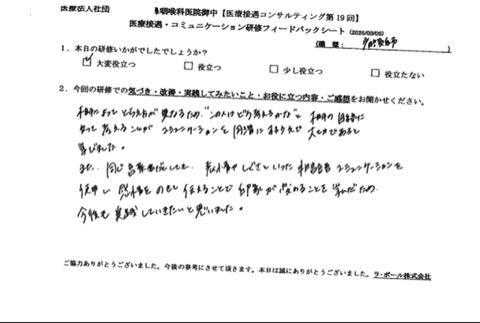 医療法人社団 咽喉科医院御中【医療接遇コンサルティング第19回】
医療接遇・コミュニケーション研修フィードバックシート (2026/03/09)
(職種: )
1.本日の研修いかがでしたでしょうか?
☑ 大変役立つ □ 役立つ □ 少し役立つ □ 役立たない
2.今回の研修での気づき・改善・実践してみたいこと・お役に立つ内容・ご感想をお聞かせください。
相手によってとらえ方が異なるため、"この人はどう考えるかな"と相手の目線に
立って考えることがコミュニケーションを円滑にするうえで大切であると
学びました。
また、同じ言葉
使用し感情をのせて伝えることで印象が変わることを学んだため
今後も実践していきたいと思いました。
ご協力ありがとうございました。今後の参考にさせて頂きます。本日は誠にありがとうございました。ラ・ポール株式会社